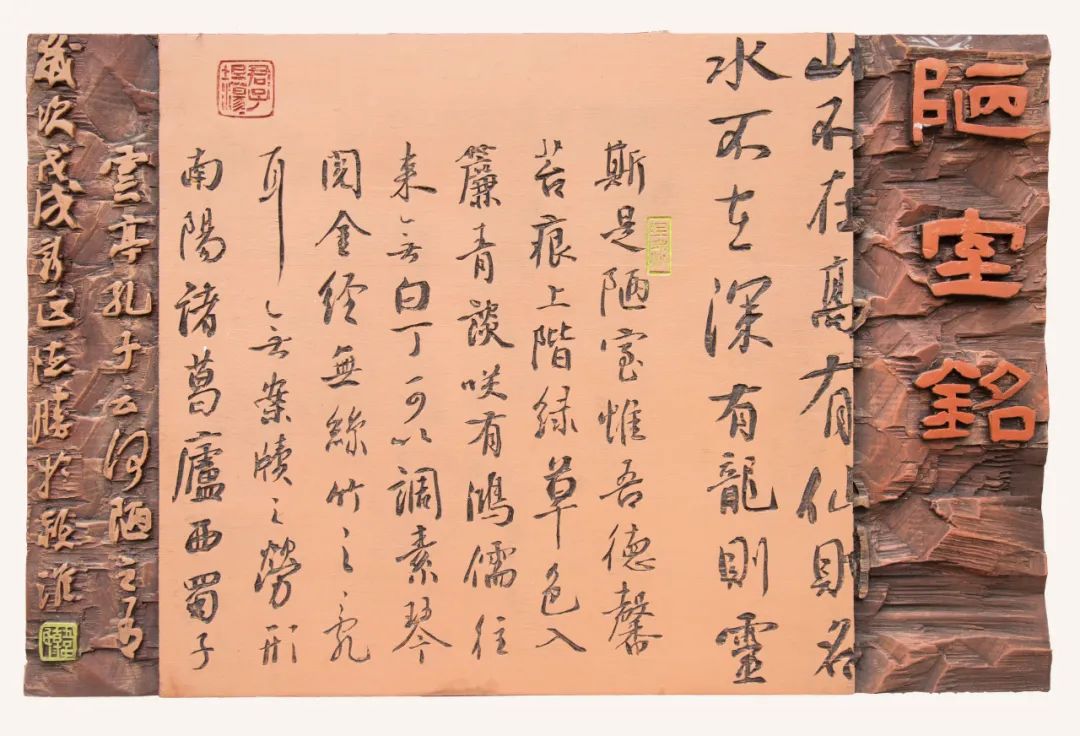 陋室銘
山不在高有仙則名
水不在深有龍則靈
斯是陋室惟吾德馨
苔痕上階緑草色入
簾青談咲有鴻儒往
来无白丁可以調素琴
閲金经無絲竹之乱
耳无案牘之勞形
南陽諸葛廬西蜀子
雲亭孔子云何陋之有
歲次戊戌匠於淮